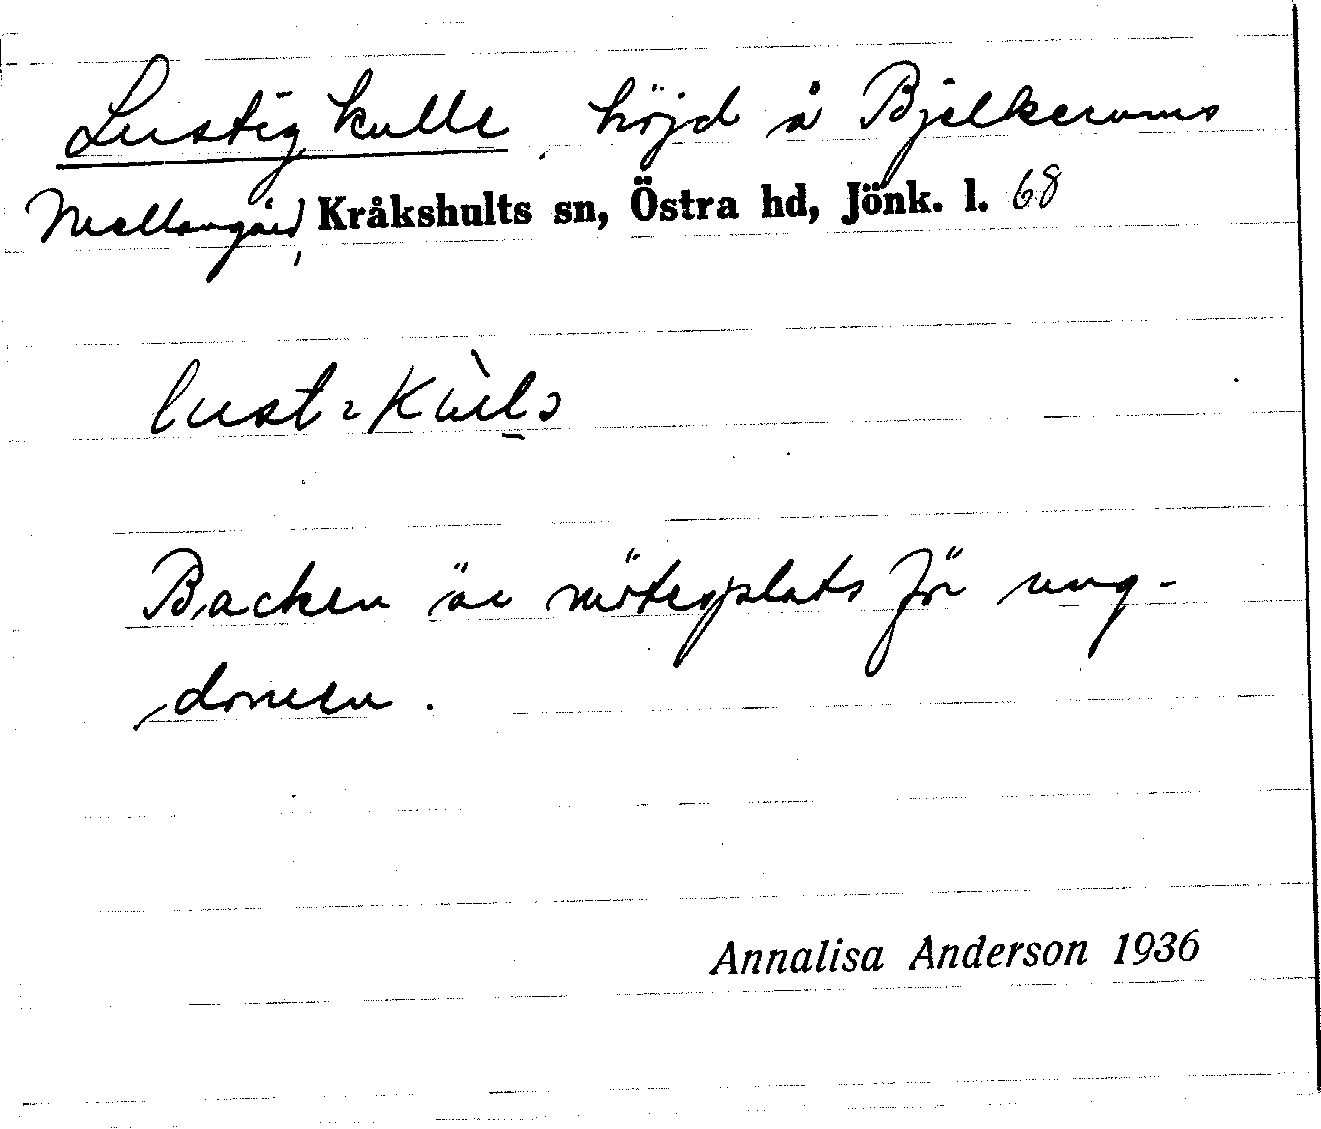 Lustig kulle, höjd å Bjelkerums
Mellangård, Kråkshults sn, Östra hd, Jönk. l. 68
Backen är mötesplats för ung-
domen.
Annalisa Anderson 1936